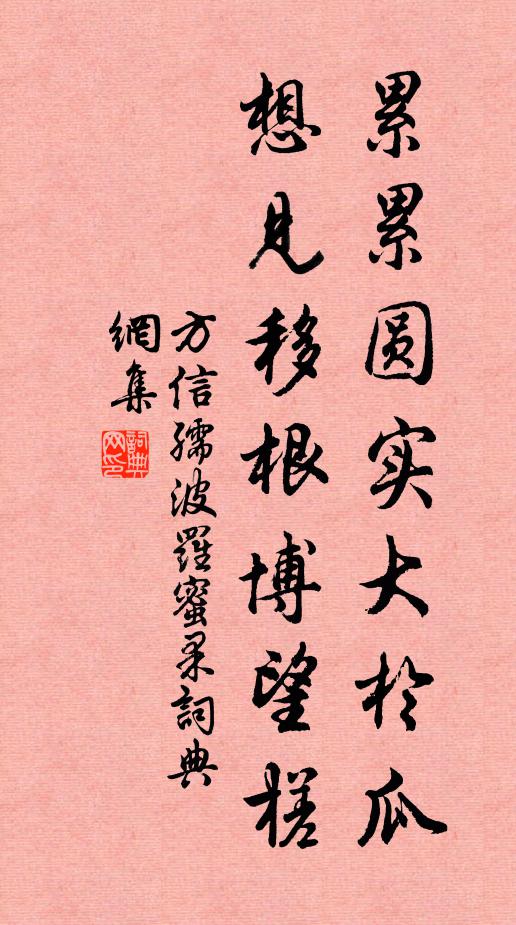 累累圆实大於瓜
想见移根博望槎
方信孺波羅蜜果詞典
網集
詞典
网印